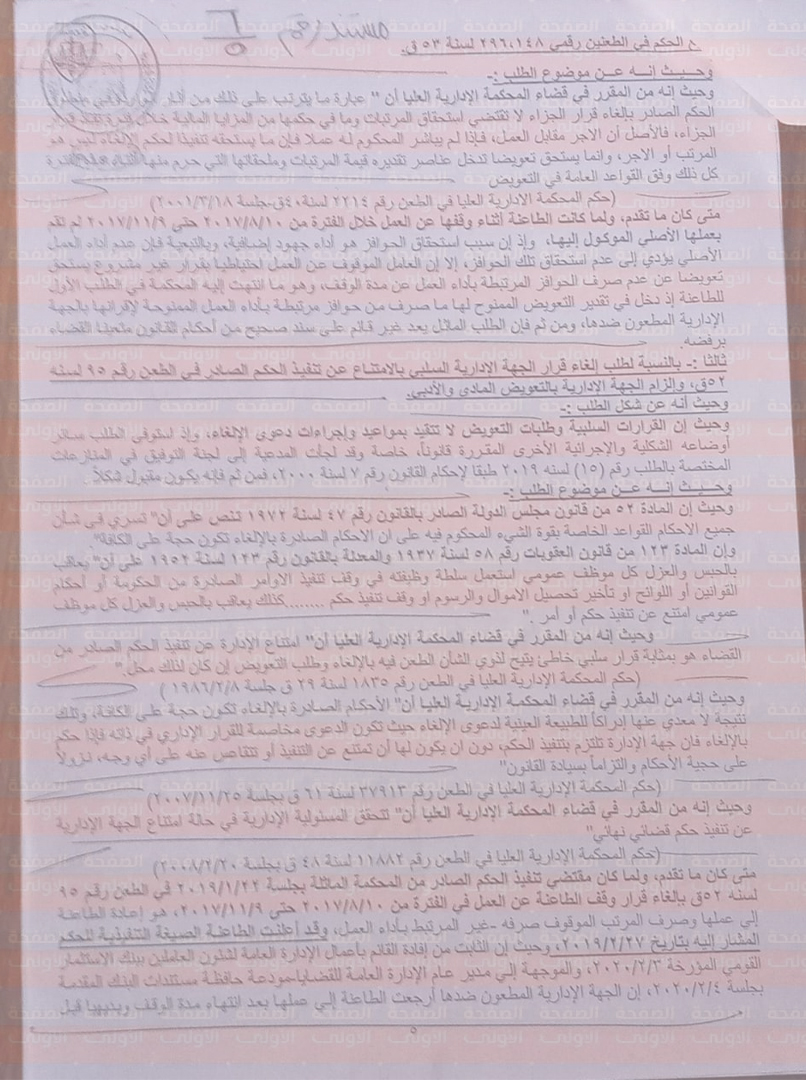 مستند رقم ٦/٥
ع الحكم في الطعنين رقمي ٢٩٦،١٤٨ لسنة ٥٣ ق.
وحيث إنه عن موضوع الطلب :-
وحيث إنه من المقرر في قضاء المحكمة الإدارية العليا أن " عبارة ما يترتب على ذلك من آثار
الحكم الصادر بإلغاء قرار الجزاء لا تقتضي استحقاق المرتبات وما في حكمها من المزايا المالية خلال فترة
الجزاء، فالأصل أن الاجر مقابل العمل، فإذا لم يباشر المحكوم له عملا فإن ما يستحقه تنفيذا لحكم الإلغاء ليس هو
المرتب أو الاجر، وانما يستحق تعويضا تدخل عناصر تقديره قيمة المرتبات وملحقاتها التي حرم منها
كل ذلك وفق القواعد العامة في التعويض
(حكم المحكمة الادارية العليا في الطعن رقم ٢٢١٤ لسنة ٤٠ق-جلسة ٢٠٠١/٣/١٨)
متى كان ما تقدم، ولما كانت الطاعنة أثناء وقفها عن العمل خلال الفترة من ٢٠١٧/٨/١٠ حتى ٢٠١٧/١١/٩ لم تقم
بعملها الأصلي الموكول إليها، وإذ إن سبب استحقاق الحوافز هو أداء جهود إضافية، وبالتبعية فإن عدم أداء العمل
الأصلي يؤدي إلى عدم استحقاق تلك الحوافز، إلا إن العامل الموقوف عن العمل احتياطيا بقرار غير مشروع يستحق
تعويضا عن عدم صرف الحوافز المرتبطة بأداء العمل عن مدة الوقف، وهو ما انتهت إليه المحكمة في الطلب الأول
للطاعنة إذ دخل في تقدير التعويض الممنوح لها ما صرف من حوافز مرتبطة بأداء العمل الممنوحة لإقرانها بالجهة
الإدارية المطعون ضدها، ومن ثم فإن الطلب الماثل يعد غير قائم على سند صحيح من أحكام القانون متعينا القضاء
برفضه.
ثالثا :- بالنسبة لطلب إلغاء قرار الجهة الإدارية السلبي بالامتناع عن تنفيذ الحكم الصادر في الطعن رقم ٩٥ لسنه
٥٢ق، وإلزام الجهة الإدارية بالتعويض المادي والأدبي.
وحيث أنه عن شكل الطلب :-
وحيث إن القرارات السلبية وطلبات التعويض لا تتقيد بمواعيد وإجراءات دعوى الإلغاء، وإذ استوفى الطلب سائر
أوضاعه الشكلية والإجرائية الأخرى المقررة قانونا، خاصة وقد لجأت المدعية إلى لجنة التوفيق في المنازعات
المختصة بالطلب رقم (١٥) لسنه ٢٠١٩ طبقا لإحكام القانون رقم ٧ لسنه ٢٠٠٠، فمن ثم فإنه يكون مقبول شكلاً .
وحيث إنه عن موضوع الطلب :-
وحيث إن المادة ٥٢ من قانون مجلس الدولة الصادر بالقانون رقم ٤٧ لسنة ١٩٧٢ تنص على أن" تسري في شأن
جميع الاحكام القواعد الخاصة بقوة الشيء المحكوم فيه على ان الاحكام الصادرة بالإلغاء تكون حجة على الكافة".
وإن المادة ١٢٣ من قانون العقوبات رقم ٥٨ لسنة ١٩٣٧ والمعدلة بالقانون رقم ١٢٣ لسنة ١٩٥٢ على أن" يعاقب
بالحبس والعزل كل موظف عمومي استعمل سلطة وظيفته في وقف تنفيذ الاوامر الصادرة من الحكومة أو أحكام
القوانين أو اللوائح او تأخير تحصيل الاموال والرسوم او وقف تنفيذ حكم ........كذلك يعاقب بالحبس والعزل كل موظف
عمومي امتنع عن تنفيذ حكم أو أمر ."
وحيث إنه من المقرر في قضاء المحكمة الإدارية العليا أن" امتناع الإدارة عن تنفيذ الحكم الصادر من
القضاء هو بمثابة قرار سلبي خاطئ يتيح لذوي الشأن الطعن فيه بالإلغاء وطلب التعويض إن كان لذلك محل."
(حكم المحكمة الإدارية العليا في الطعن رقم ١٨٣٥ لسنة ٢٩ ق جلسة ١٩٨٦/٢/٨ )
وحيث إنه من المقرر في قضاء المحكمة الإدارية العليا أن" الأحكام الصادرة بالإلغاء تكون حجة على الكافة، وتلك
نتيجة لا معدي عنها إدراكاً للطبيعة العينية لدعوى الإلغاء حيث تكون الدعوى مخاصمة للقرار الإداري في ذاته فإذا حكم
بالإلغاء فان جهة الإدارة تلتزم بتنفيذ الحكم، دون ان يكون لها أن تمتنع عن التنفيذ أو تتقاعص عنه على أي وجه، نزولاً
على حجية الأحكام والتزاماً بسيادة القانون"
(حكم المحكمة الإدارية العليا في الطعن رقم ٣٧٩١٣ لسنة ٦١ ق بجلسة ٢٠٠٧/١١/٢٥)
وحيث إنه من المقرر في قضاء المحكمة الإدارية العليا أن" تتحقق المسئولية الإدارية في حالة امتناع الجهة الإدارية
عن تنفيذ حكم قضائي نهائي"
(حكم المحكمة الإدارية العليا في الطعن رقم ١١٨٨٢ لسنة ٤٨ ق بجلسة ٢٠٠٨/٢/٢٠)
متى كان ما تقدم، ولما كان مقتضي تنفيذ الحكم الصادر من المحكمة الماثلة بجلسة ٢٠١٩/١/٢٢ في الطعن رقم ٩٥
لسنه ٥٢ق بإلغاء قرار وقف الطاعنة عن العمل في الفترة من ٢٠١٧/٨/١٠ حتى ٢٠١٧/١١/٩، هو إعادة الطاعنة
إلي عملها وصرف المرتب الموقوف صرفه -غير المرتبط بأداء العمل، وقد أعلنت الطاعنة الصيغة التنفيذية للحكم
المشار إليه بتاريخ ٢٠١٩/٢/٢٧، وحيث إن الثابت من إفادة القائم بأعمال الإدارة العامة لشئون العاملين ببنك الاستثمار
القومي المؤرخة ٢٠٢٠/٢/٣، والموجهة إلي مدير عام الإدارة العامة للقضايا-مودعة حافظة مستندات البنك المقدمة
بجلسة ٢٠٢٠/٢/٤، إن الجهة الإدارية المطعون ضدها أرجعت الطاعنة إلى عملها بعد انتهاء مدة الوقف وبنيهيا قبل
٥